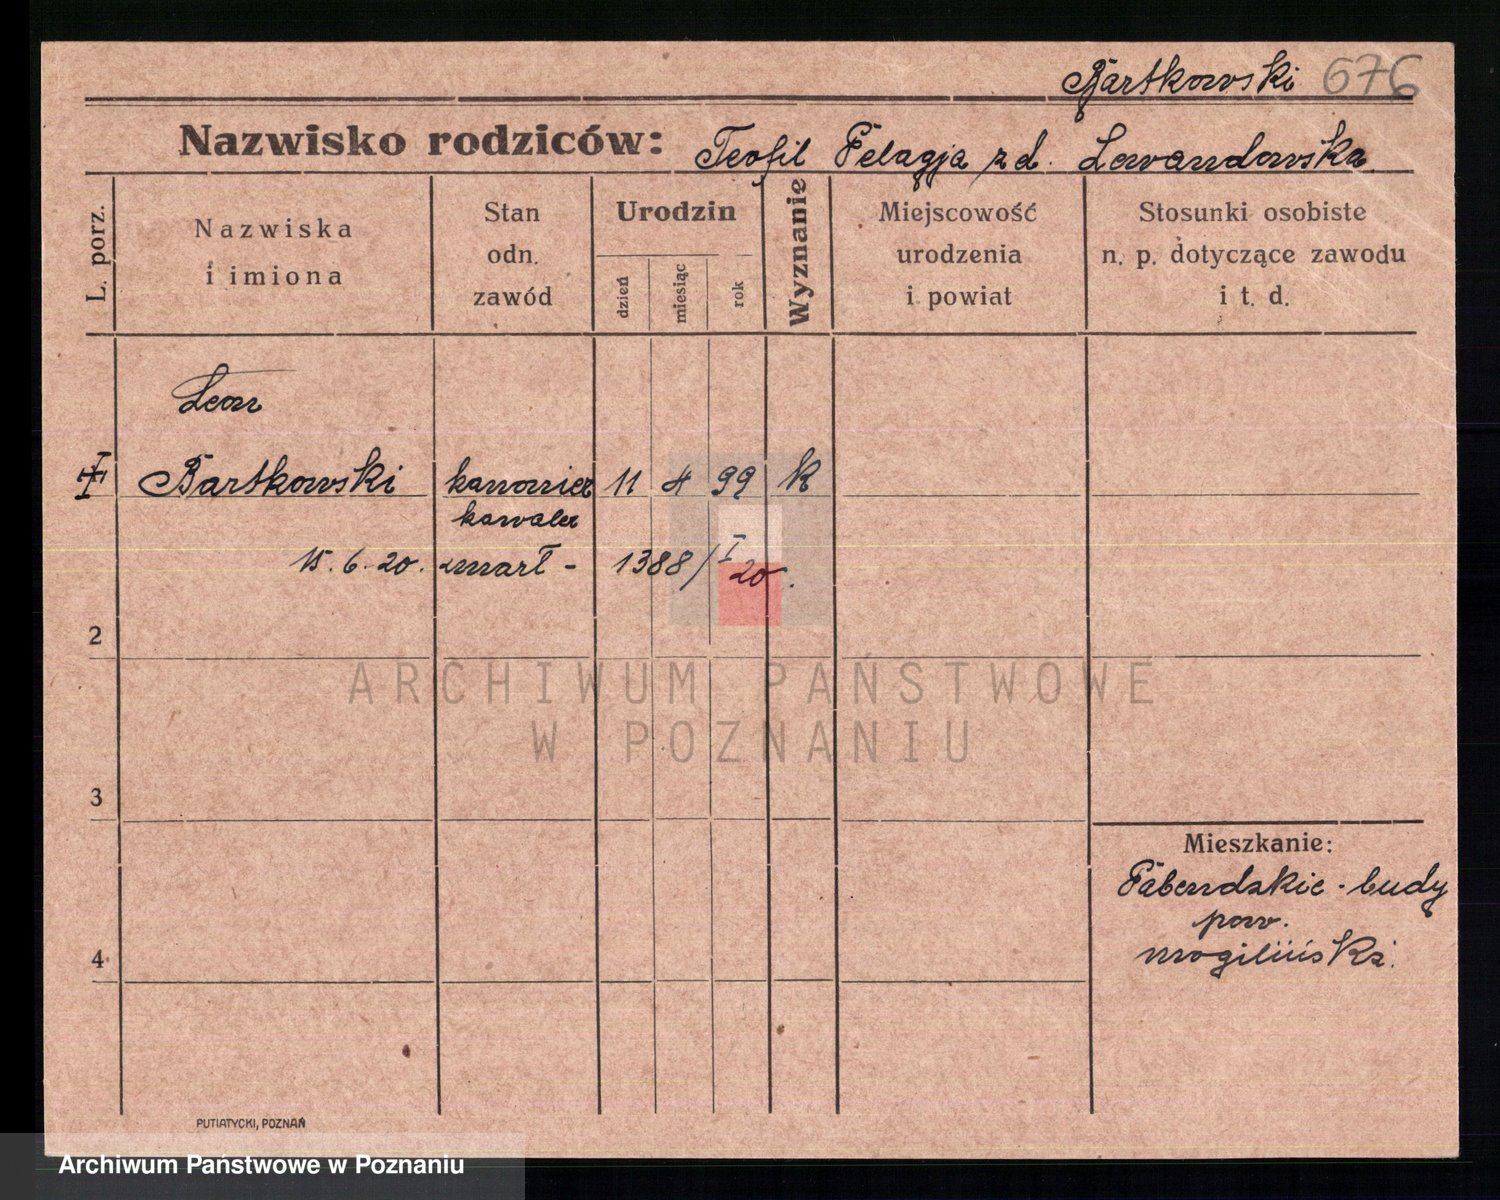 Bartkowski 676
Nazwisko rodziców: Teofil Pelagja z d. Lewandowska
L. porz.
Nazwiska
i imiona
Stan
odn.
zawód
Urodzin
dzień
miesiąc
rok
Wyznanie
Miejscowość
urodzenia
i powiat
Stosunki osobiste
n. p. dotyczące zawodu
i t. d.
Leon
Bartkowski kanonier 11 4 99 k
kawaler
15. 6. 20. zmarł - 1388/I 20.
2
ARCHIWUM PAŃSTWOWE
W POZNANIU
3
4
Mieszkanie:
budy
pow.
mogiliński.
PUTIATYCKI, POZNAŃ
Archiwum Państwowe w Poznaniu